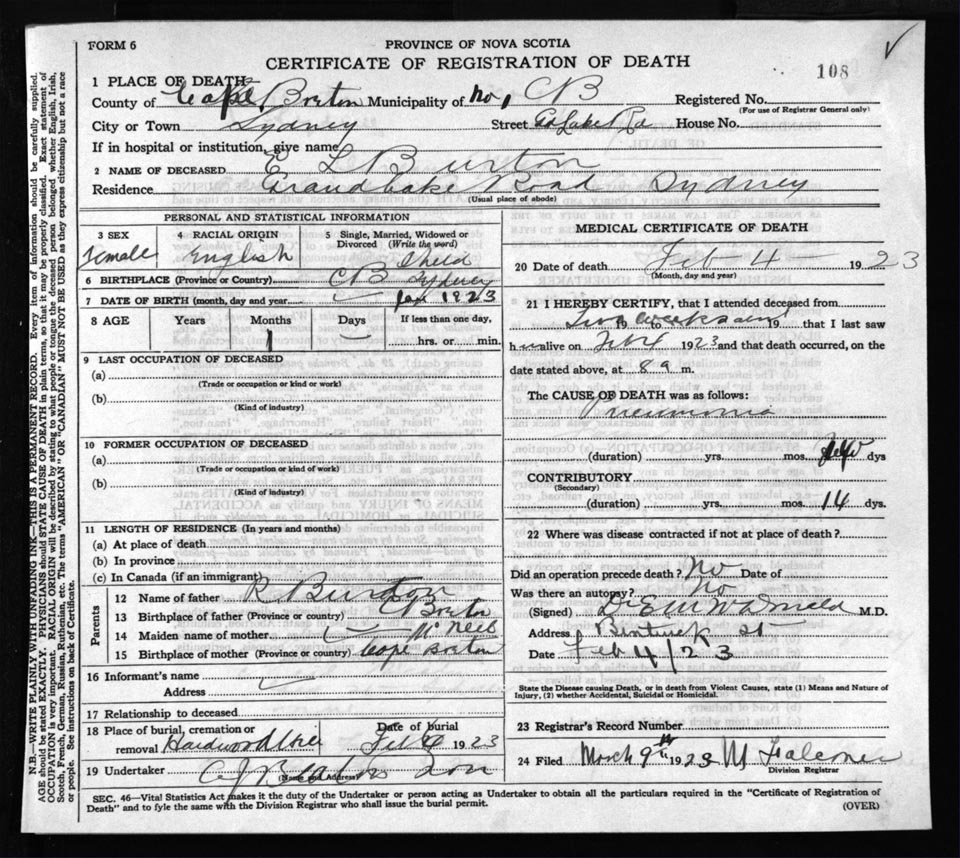 FORM 6
PROVINCE OF NOVA SCOTIA
CERTIFICATE OF REGISTRATION OF DEATH
108
1 PLACE OF DEATH
County of Cape Breton Municipality of No, CB Registered No.
(For use of Registrar General only)
City or Town Sydney Street Gd Lake Rd House No.
If in hospital or institution, give name
2 NAME OF DECEASED E L Burton
Residence Grand Lake Road Sydney
(Usual place of abode)
PERSONAL AND STATISTICAL INFORMATION
3 SEX 4 RACIAL ORIGIN 5 Single, Married, Widowed or Divorced (Write the word)
Female English Child
6 BIRTHPLACE (Province or Country) CB Sydney
7 DATE OF BIRTH (month, day and year) Jan 1923
8 AGE Years Months Days If less than one day,
1 hrs. or min.
9 LAST OCCUPATION OF DECEASED
(a)
(Trade or occupation or kind or work)
(b)
(Kind of industry)
10 FORMER OCCUPATION OF DECEASED
(a)
(Trade or occupation or kind of work)
(b)
(Kind of industry)
11 LENGTH OF RESIDENCE (In years and months)
(a) At place of death
(b) In province
(c) In Canada (if an immigrant)
Parents
12 Name of father R Burton
13 Birthplace of father (Province or country) C Breton
14 Maiden name of mother McNeil
15 Birthplace of mother (Province or country) Cape Breton
16 Informant's name
Address
17 Relationship to deceased
18 Place of burial, cremation or removal Hardwood Hill Date of burial Feb 1923
19 Undertaker C J Son
(Name and Address)
MEDICAL CERTIFICATE OF DEATH
20 Date of death Feb 4 1923
(Month, day and year)
21 I HEREBY CERTIFY, that I attended deceased from
Two weeks 19 to 19 that I last saw
h alive on Feb 4 1923 and that death occurred, on the
date stated above, at 8 a m.
The CAUSE OF DEATH was as follows:
Pneumonia
(duration) yrs. mos. few dys
CONTRIBUTORY
(Secondary)
(duration) yrs. mos. 14 dys.
22 Where was disease contracted if not at place of death?
Did an operation precede death? No Date of
Was there an autopsy? No
(Signed) Dr E M McDonald M.D.
Address Bentinck St
Date Feb 4/23
State the Disease causing Death, or in death from Violent Causes, state (1) Means and Nature of
Injury, (2) whether Accidental, Suicidal or Homicidal.
23 Registrar's Record Number
24 Filed March 9th 1923 M Falconer
Division Registrar
SEC. 46—Vital Statistics Act makes it the duty of the Undertaker or person acting as Undertaker to obtain all the particulars required in the "Certificate of Registration of
Death" and to fyle the same with the Division Registrar who shall issue the burial permit. (OVER)
N.B.—WRITE PLAINLY WITH UNFADING INK—THIS IS A PERMANENT RECORD. Every item of information should be carefully supplied.
AGE should be stated EXACTLY. PHYSICIANS should STATE CAUSE OF DEATH in plain terms, so that it may be properly classified. Exact statement of
OCCUPATION is very important. RACIAL ORIGIN will be described by stating to what people or tongue the deceased person belonged whether English, Irish,
Scotch, French, German, Russian, Ruthenian, etc. The terms "AMERICAN" OR "CANADIAN" MUST NOT BE USED as they express citizenship but not a race
or people. See instructions on back of Certificate.